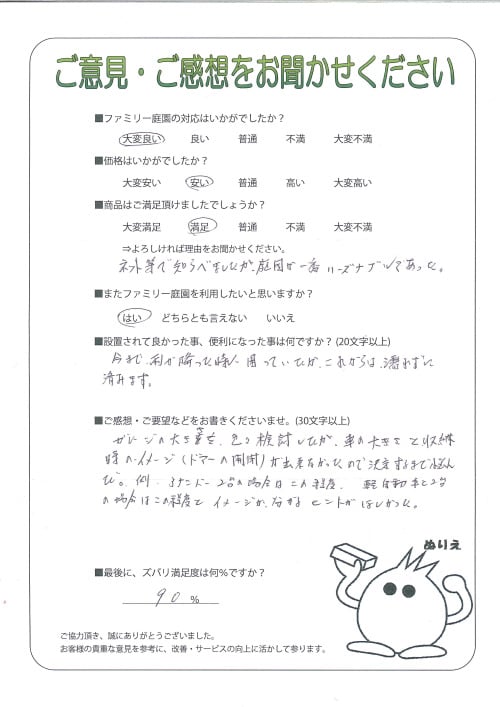 ご意見・ご感想をお聞かせください
■ファミリー庭園の対応はいかがでしたか？
大変良い 良い 普通 不満 大変不満
■価格はいかがでしたか？
大変安い 安い 普通 高い 大変高い
■商品はご満足頂けましたでしょうか？
大変満足 満足 普通 不満 大変不満
⇒よろしければ理由をお聞かせください。
ネット等で知らべましたが、庭園が一番リーズナブルであった。
■またファミリー庭園を利用したいと思いますか？
はい どちらとも言えない いいえ
■設置されて良かった事、便利になった事は何ですか？(20文字以上)
今まで、雨が降った時に困っていたが、これからは、濡れずに
済みます。
■ご感想・ご要望などをお書きくださいませ。(30文字以上)
ガレージの大きさを、色々検討したが、車の大きさと収納
時のイメージ(ドアーの開閉)が出来なかったので決定するまで悩ん
だ。例：3ナンバー2台の場合はこの程度、軽自動車と2台
の場合はこの程度とイメージが分かるヒントがほしかった。
ぬりえ
■最後に、ズバリ満足度は何％ですか？
90 ％
ご協力頂き、誠にありがとうございました。
お客様の貴重な意見を参考に、改善・サービスの向上に活かして参ります。